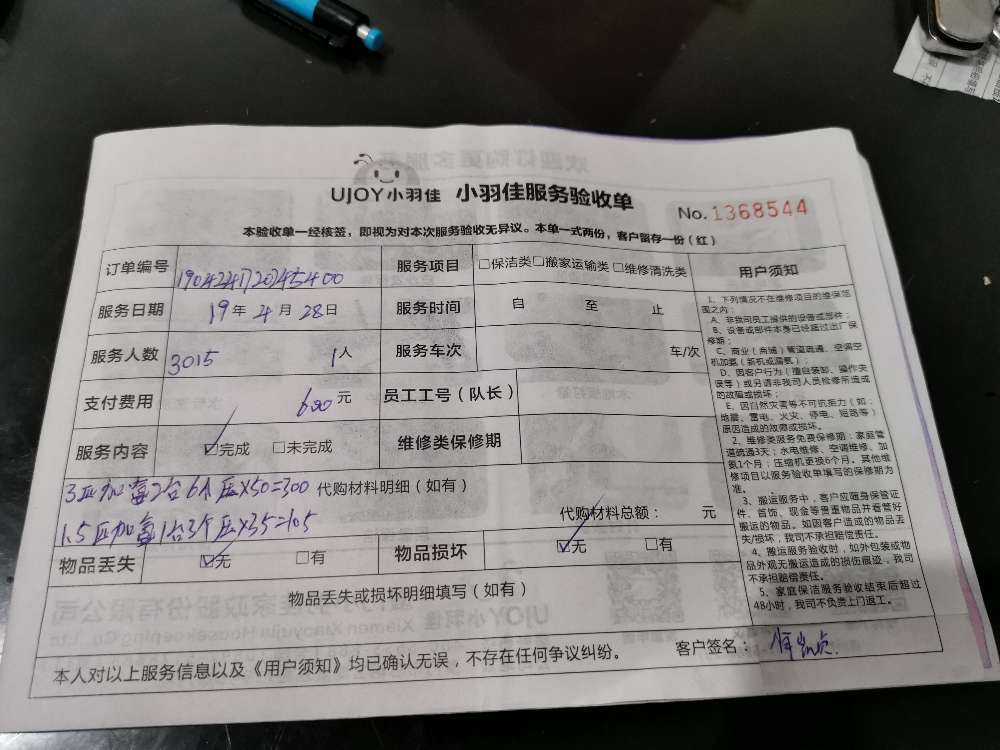 UJOY小羽佳 小羽佳服务验收单
No. 1368544
本验收单一经核签，即视为对本次服务验收无异议。本单一式两份，客户留存一份（红）
订单编号
服务项目 □保洁类□搬家运输类□维修清洗类
服务日期 19年4月28日
服务时间 自 至 止
服务人数 3015 1人
服务车次 车/次
支付费用 600元
员工工号（队长）
服务内容 ☑完成 □未完成
维修类保修期
3匹加 2台6个压X50=300 代购材料明细（如有）
1.5匹加 1台3个压X35=105
代购材料总额： 元
物品丢失 ☑无 □有
物品损坏 ☑无 □有
物品丢失或损坏明细填写（如有）
用户须知
1、下列情况不在维修项目的维保范
围之内：
A、非我司员工提供的设备或部件；
B、设备或部件本身已经超过出厂保
修期；
C、商业（商铺）管道疏通、空调空
机加氨（新机或漏氨）；
D、因客户行为（擅自装卸、操作失
误等）或另请非我司人员检修所造成
的故障或损坏；
E、因自然灾害等不可抗拒力（如：
地震、雷电、火灾、停电、短路等）
原因造成的故障或损坏。
2、维修类服务免费保修期：家庭管
道疏通3天；水电维修、空调维修、加
氨1个月；压缩机更换6个月。其他维
修项目以服务验收单填写的保修期为
准。
3、搬运服务中，客户应随身保管证
件、首饰、现金等贵重物品并看管好
搬运的物品。如因客户造成的物品丢
失/损坏，我司不承担赔偿责任。
4、搬运服务验收时，如外包装或物
品外观无搬运造成的损伤痕迹，我司
不承担赔偿责任。
5、家庭保洁服务验收结束后超过
48小时，我司不负责上门返工。
本人对以上服务信息以及《用户须知》均已确认无误，不存在任何争议纠纷。 客户签名：